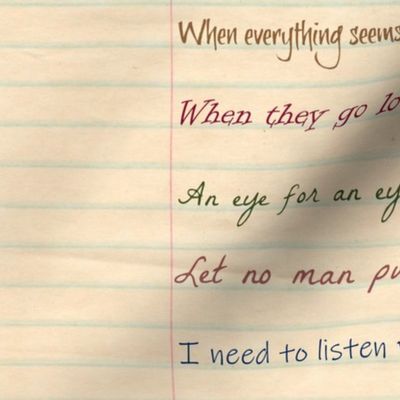 When everything seems
When they go
An eye for an
Let no man
I need to listen